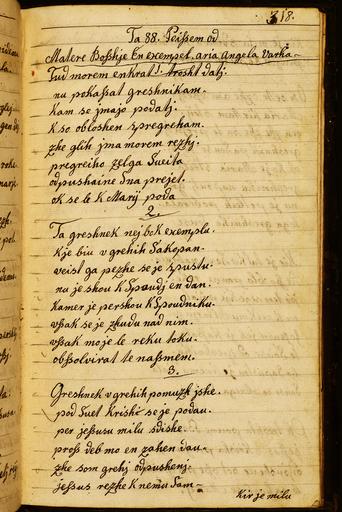 318.
Ta 88. Peißem od
Matere Boßhje En exempel. aria Angela Varha
Tud morem enkrat trosht datj.
nu pokaßat greshnikam.
Kam se jmajo podatj.
K so obloshen spregreham.
zhe glih jma morem rezhj.
pregreiho zelga Sueita
odpushaine Sna prejet.
ok se le k Marij poda
2.
Ta greshnek nej bek exemplu.
Kje biu vgrehih Sakopan.
veist ga pezhe se je spustu.
nu je shou k Spaudj en dan.
Kamer je pershou k Spoudniku.
vßak se je zhudu nad nim.
vßak moje le reku toku.
obßolvirat te naßmem.
3.
Greshnek vgrehih pomuzk jshe.
pod Suet Krishè se je podau.
per jeßusu milu sdishe.
proß deb mo en zahen dau.
zhe som grehj odpushenj.
jeßus rezhe k nemu Sam
Kir je milu